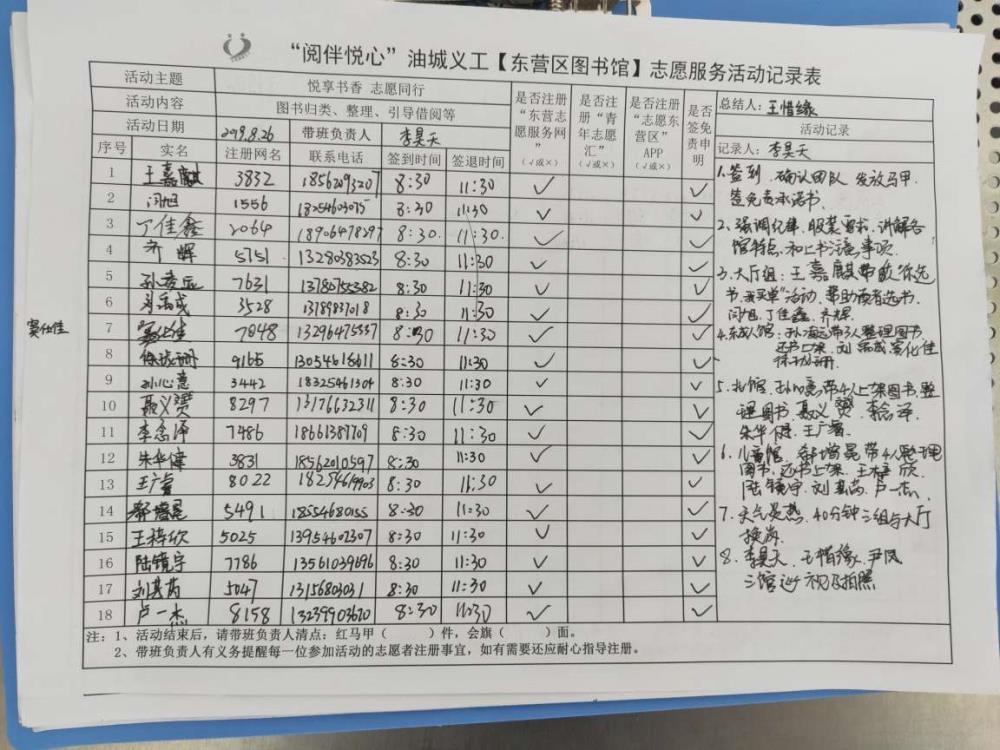 “阅伴悦心”油城义工【东营区图书馆】志愿服务活动记录表
活动主题 悦享书香 志愿同行
活动内容 图书归类、整理、引导借阅等
活动日期 2019.8.26 带班负责人 李昊天
序号 实名 注册网名 联系电话 签到时间 签退时间 是否注册“东营志愿服务网” (√或×) 是否注册“青年志愿汇” (√或×) 是否注册“志愿东营区”APP (√或×) 是否签免责申明
1 王嘉麒 3832 18562093207 8:30 11:30 ✓ ✓
2 闫旭 1556 18254603075 8:30 11:30 ✓ ✓
3 丁佳鑫 2064 18906478297 8:30. 11:30. ✓ ✓
4 齐晖 5751 13280383523 8:30 11:30 ✓ ✓
5 7631 13780755382 8:30 11:30 ✓ ✓
6 3528 13789837018 8:30 11:30 ✓ ✓
窦化佳
7 7048 13296475537 8:30 11:30 ✓ ✓
8 9165 13054616611 8:30 11:30 ✓ ✓
9 孙心意 3442 18325461304 8:30 11:30 ✓ ✓
10 聂义赟 8297 13176632311 8:30 11:30 ✓ ✓
11 李念泽 7486 18661387709 8:30 11:30 ✓ ✓
12 朱华健 3831 18562010597 8:30 11:30 ✓ ✓
13 王广睿 8022 18254619903 8:30 11:30 ✓ ✓
14 5491 18554680155 8:30 11:30 ✓ ✓
15 王梓欣 5025 13954602307 8:30 11:30 ✓ ✓
16 陆镜宇 7786 13561039696 8:30 11:30 ✓ ✓
17 刘基芮 5047 13156803031 8:30 11:30 ✓ ✓
18 卢一杰 8158 13239903620 8:30 11:30 ✓ ✓
总结人：王惜缘
活动记录
记录人：李昊天
1、签到、确认团队 发放马甲.
签免责承诺书.
2、强调纪律、服装要求、讲解各
馆特点和上书注意事项.
3、大厅组：王嘉麒带队“你选
书，我买单”活动、帮助读者选书.
闫旭、丁佳鑫、齐晖.
4、成人馆：带3人整理图书
还书上架、窦化佳
5、北馆、孙心意带4人上架图书,整
理图书 聂义赟、李念泽
朱华健、王广睿.
6、儿童馆、带4人整理
图书、还书上架、王梓欣
陆镜宇、刘基芮、卢一杰.
7、天气炎热、40分钟三组与大厅
换岗.
8、李昊天、王惜缘、尹凤
三馆巡视及拍照
注：1、活动结束后，请带班负责人清点：红马甲（ ）件，会旗（ ）面。
2、带班负责人有义务提醒每一位参加活动的志愿者注册事宜，如有需要还应耐心指导注册。